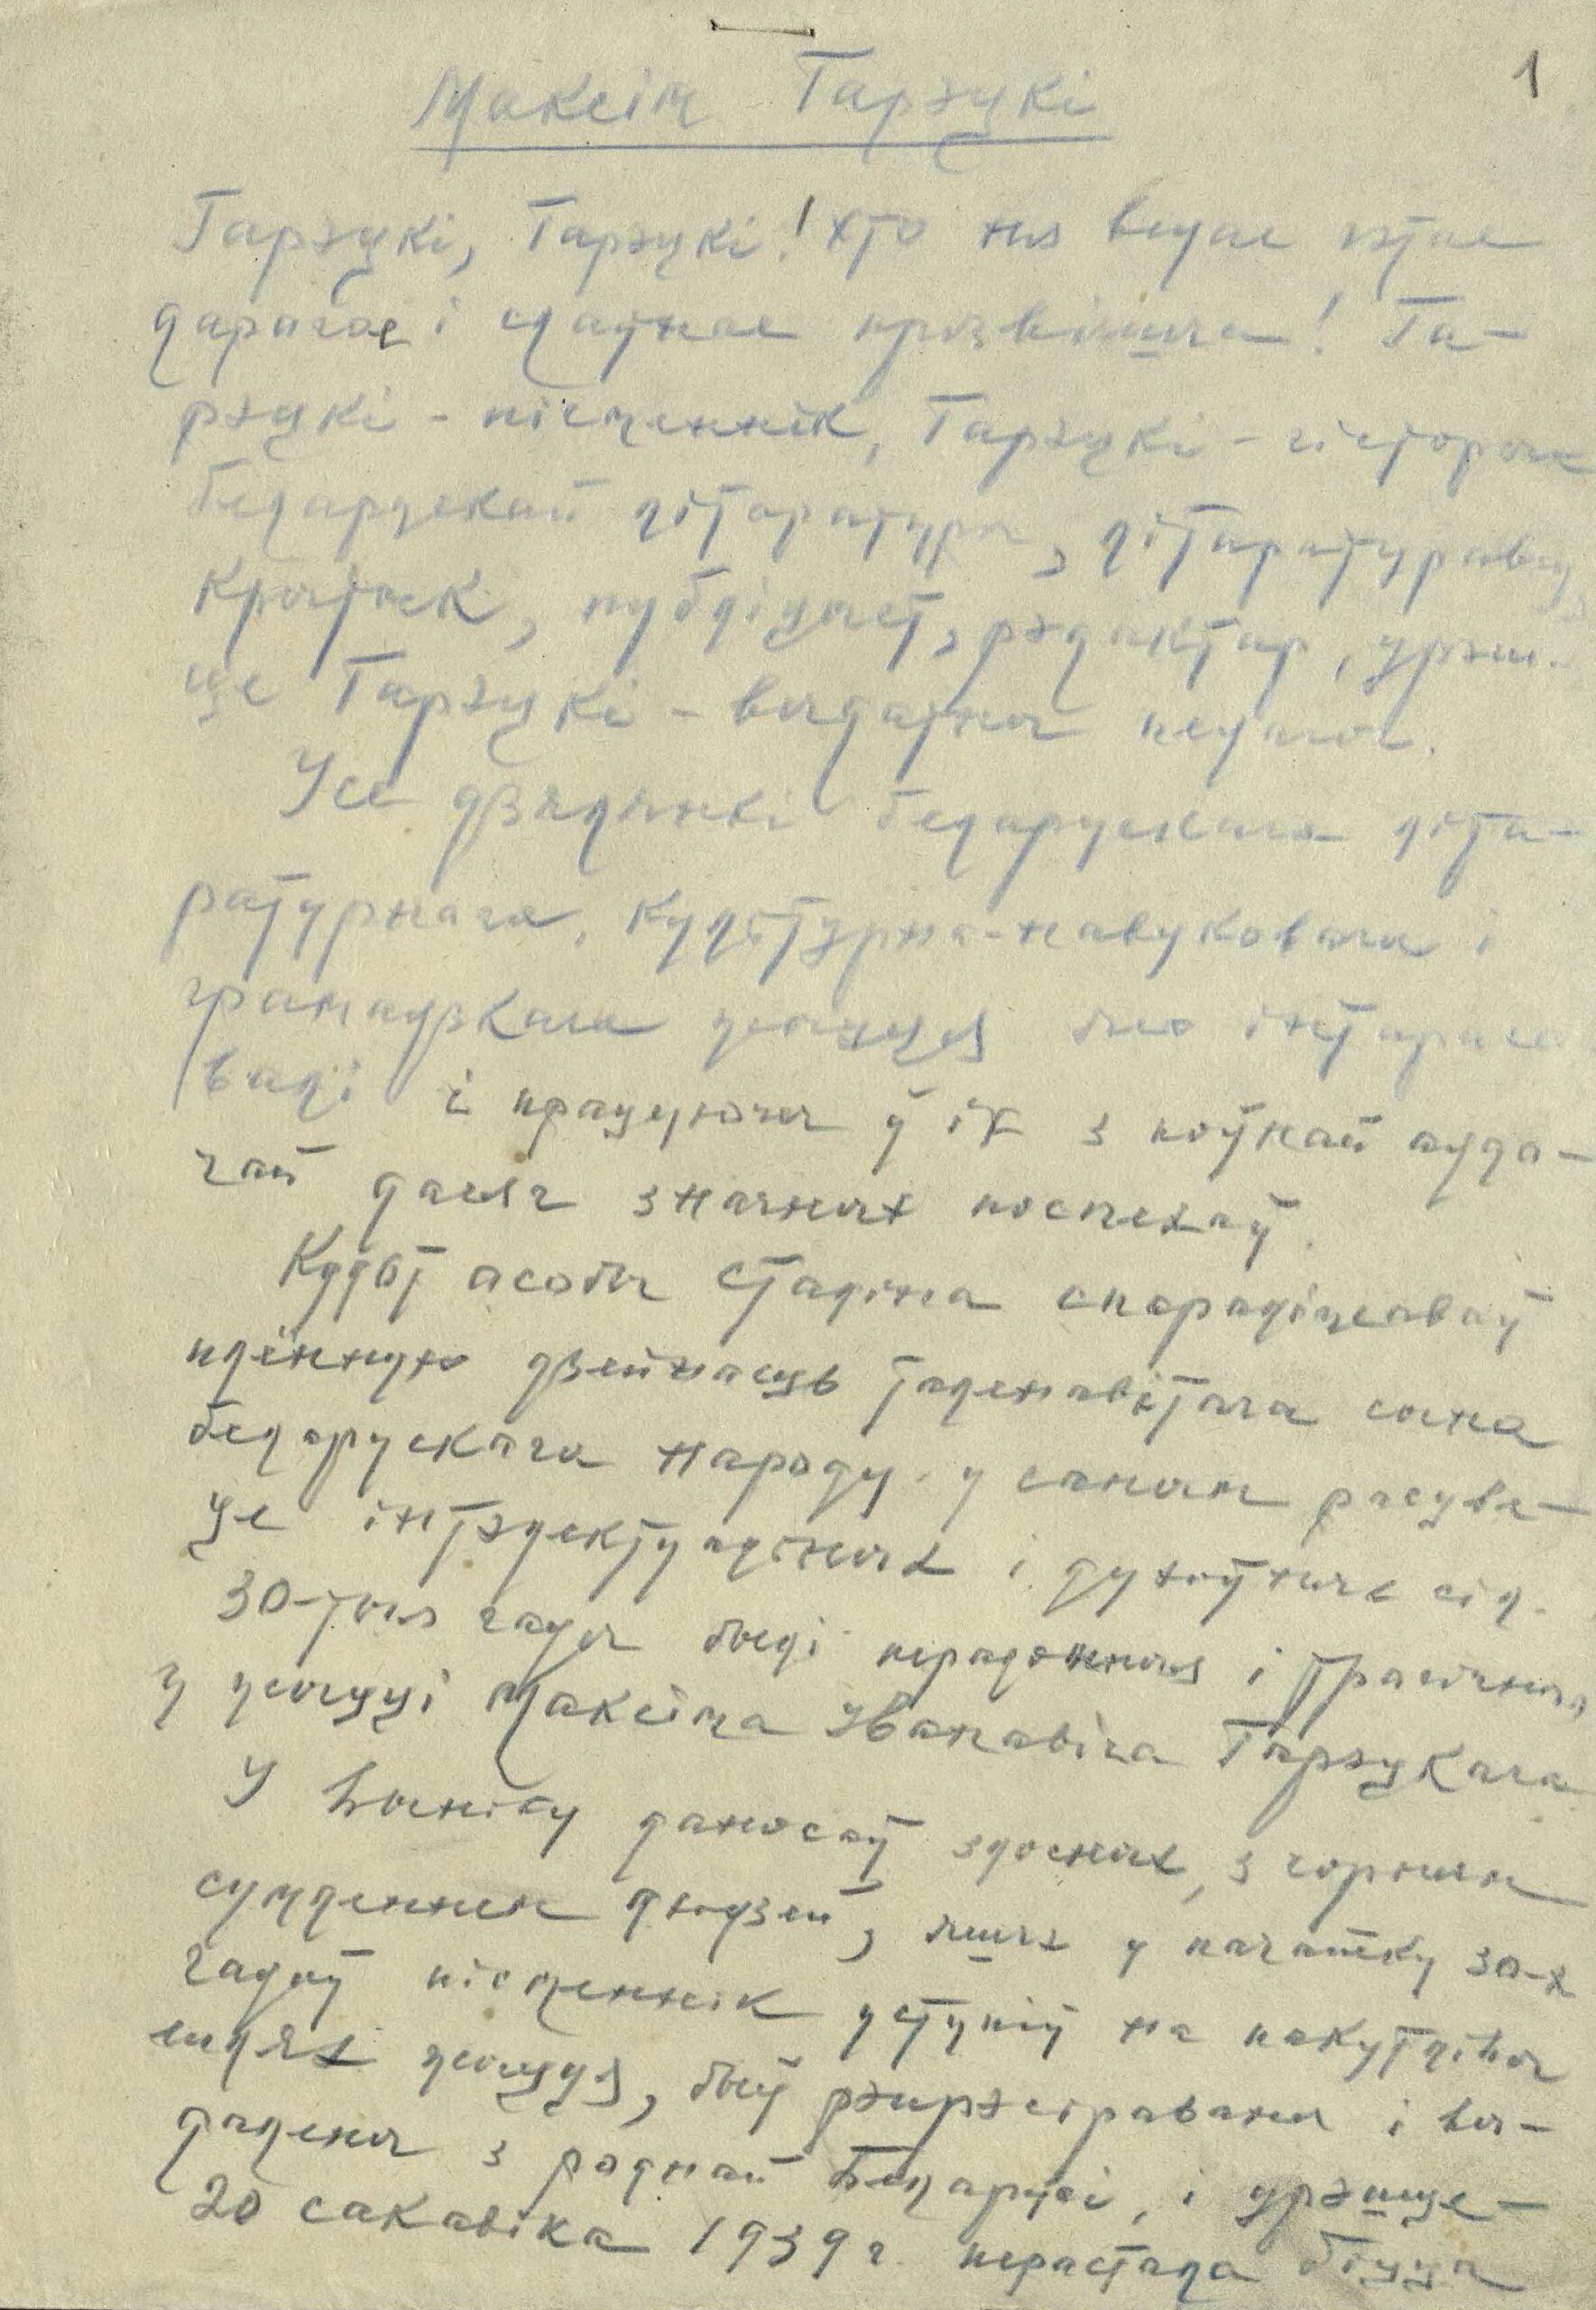 1
Максім Гарэцкі
Гарэцкі, Гарэцкі! Хто не ведае гэтае
дарагое і слаўнае прозвішча! Га-
рэцкі - пісьменнік, Гарэцкі - гісторык
беларускай літаратуры, літаратуразнавец,
крытык, публіцыст, рэдактар, урэш-
це Гарэцкі - выдатны педагог.
Усе дзялянкі беларускага літа-
ратурнага, культурна-навуковага і
грамадзкага жыцця яго інтарэса
валі і працуючы ў іх з поўнай адда-
чай дасяг значных поспехаў.
Культ асобы Сталіна спаралізаваў
плённую дзейнасць таленавітага сына
беларускага народу у самым расцве-
це інтэлектуальных і духоўных сіл.
30-тыя гады былі пераломныя і трагічныя
у жыцці Максіма Іванавіча Гарэцкага
У выніку даносаў злосных, з чорным
сумленнем людзей, якіх у пачатку 30-х
гадоў пісьменнік уступіў на пакутлівы
шлях жыцця, быў рэпрэсіраваны і вы-
далены з роднай Беларусі, і урэшце-
20 сакавіка 1939 г. перастала біцца